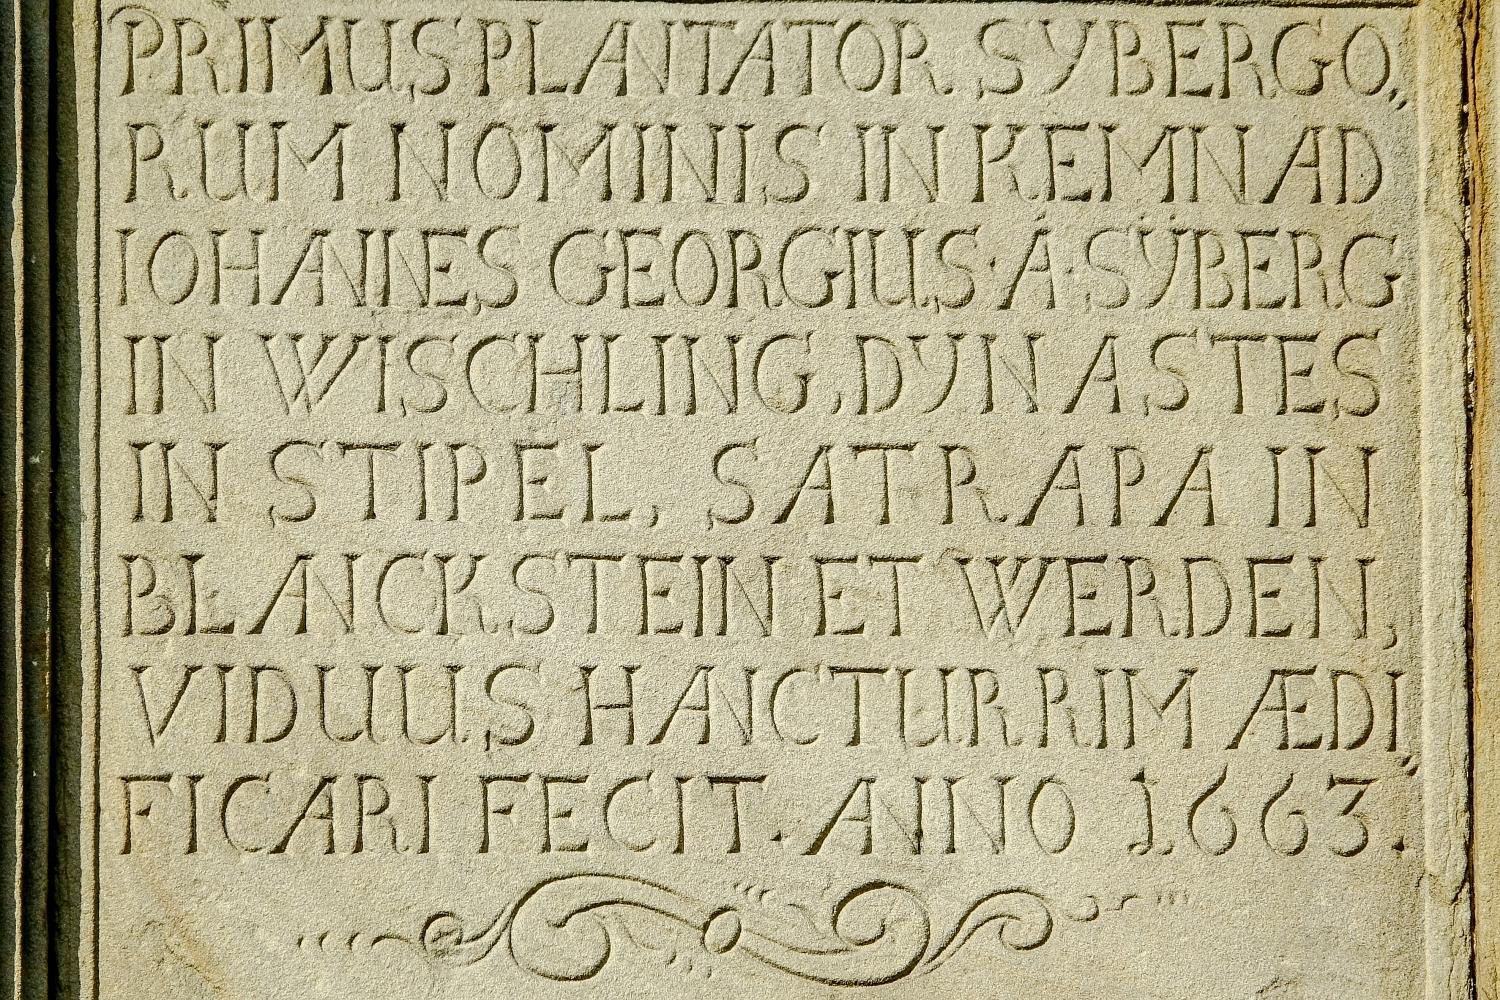 PRIMUS PLANTATOR SYBERGO„
RUM NOMINIS IN KEMNAD
IOHANNES GEORGIUS·Á·SÿBERG
IN WISCHLING, DYNASTES
IN STIPEL, SATRAPA IN
BLANCKSTEIN ET WERDEN,
VIDUUS HANCTURRIM ÆDI„
FICARI FECIT. ANNO 1663.